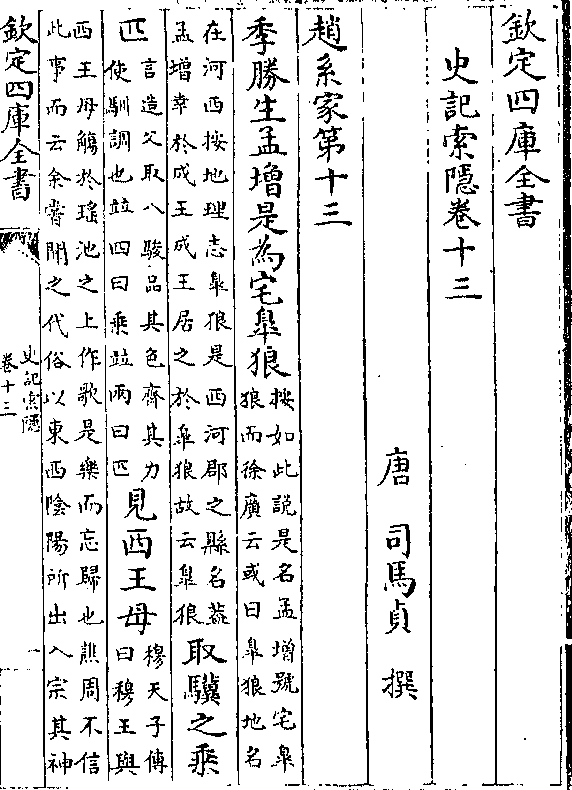 欽定四庫全書
史記索隱卷十三
唐 司馬貞 撰
趙系家第十三
季勝生孟增是為宅臯狼
按如此說是名孟增號宅臯
狼而徐廣云或曰臯狼地名
在河西按地理志臯狼是西河郡之縣名蓋
孟增幸於成王成王居之於臯狼故云臯狼
取驥之乘
匹
言造父取八駿品其色齊其力
使馴調也竝四曰乘竝兩曰匹
見西王母
穆天子傳
曰穆王與
西王母觴於瑤池之上作歌是樂而忘歸也譙周不信
此事而云余嘗聞之代俗以東西陰陽所出入宗其神
欽定四庫全書
史記索隱
卷十三
一